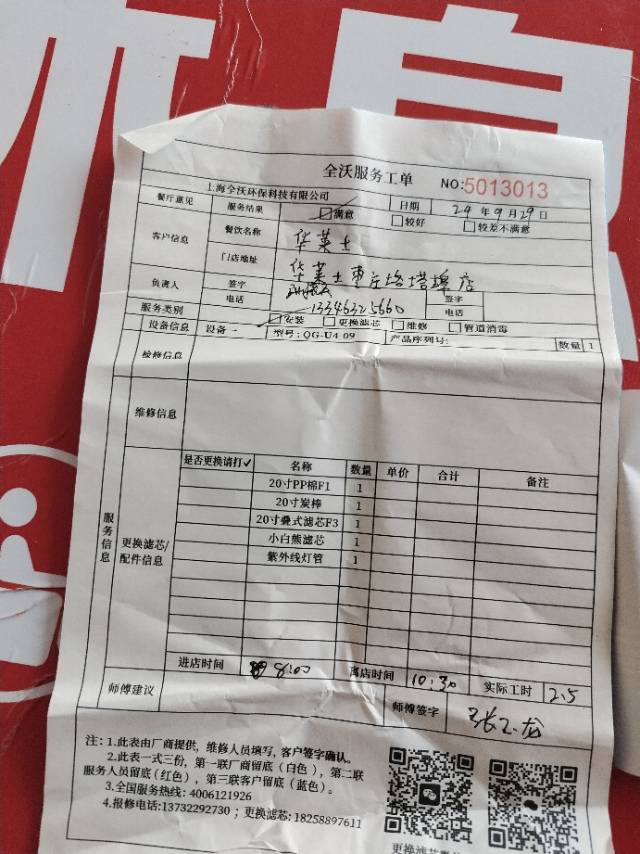 休息
全沃服务工单 NO:5013013
上海全沃环保科技有限公司 日期 24年9月29日
餐厅意见 服务结果 ☑满意 □较好 □较差不满意
客户信息 餐饮名称 华莱士
门店地址 华莱士枣庄 店
负责人 签字 签字
电话 13346325660 电话
服务类别 ☑安装 □更换滤芯 □维修 □管道消毒
设备信息 设备一 型号:QG-U4 09 产品序列号: 数量 1
检修信息
维修信息
服务信息
更换滤芯/配件信息
是否更换请打✓ 名称 数量 单价 合计 备注
20寸PP棉F1 1
20寸炭棒 1
20寸叠式滤芯F3 1
小白熊滤芯 1
紫外线灯管 1
进店时间 8:00 离店时间 10:30 实际工时 2.5
师傅建议 师傅签字 张玉龙
注:1.此表由厂商提供,维修人员填写,客户签字确认。
2.此表一式三份,第一联厂商留底(白色),第二联
服务人员留底(红色),第三联客户留底(蓝色)。
3.全国服务热线:4006121926
4.报修电话:13732292730;更换滤芯:18258897611
更换滤芯